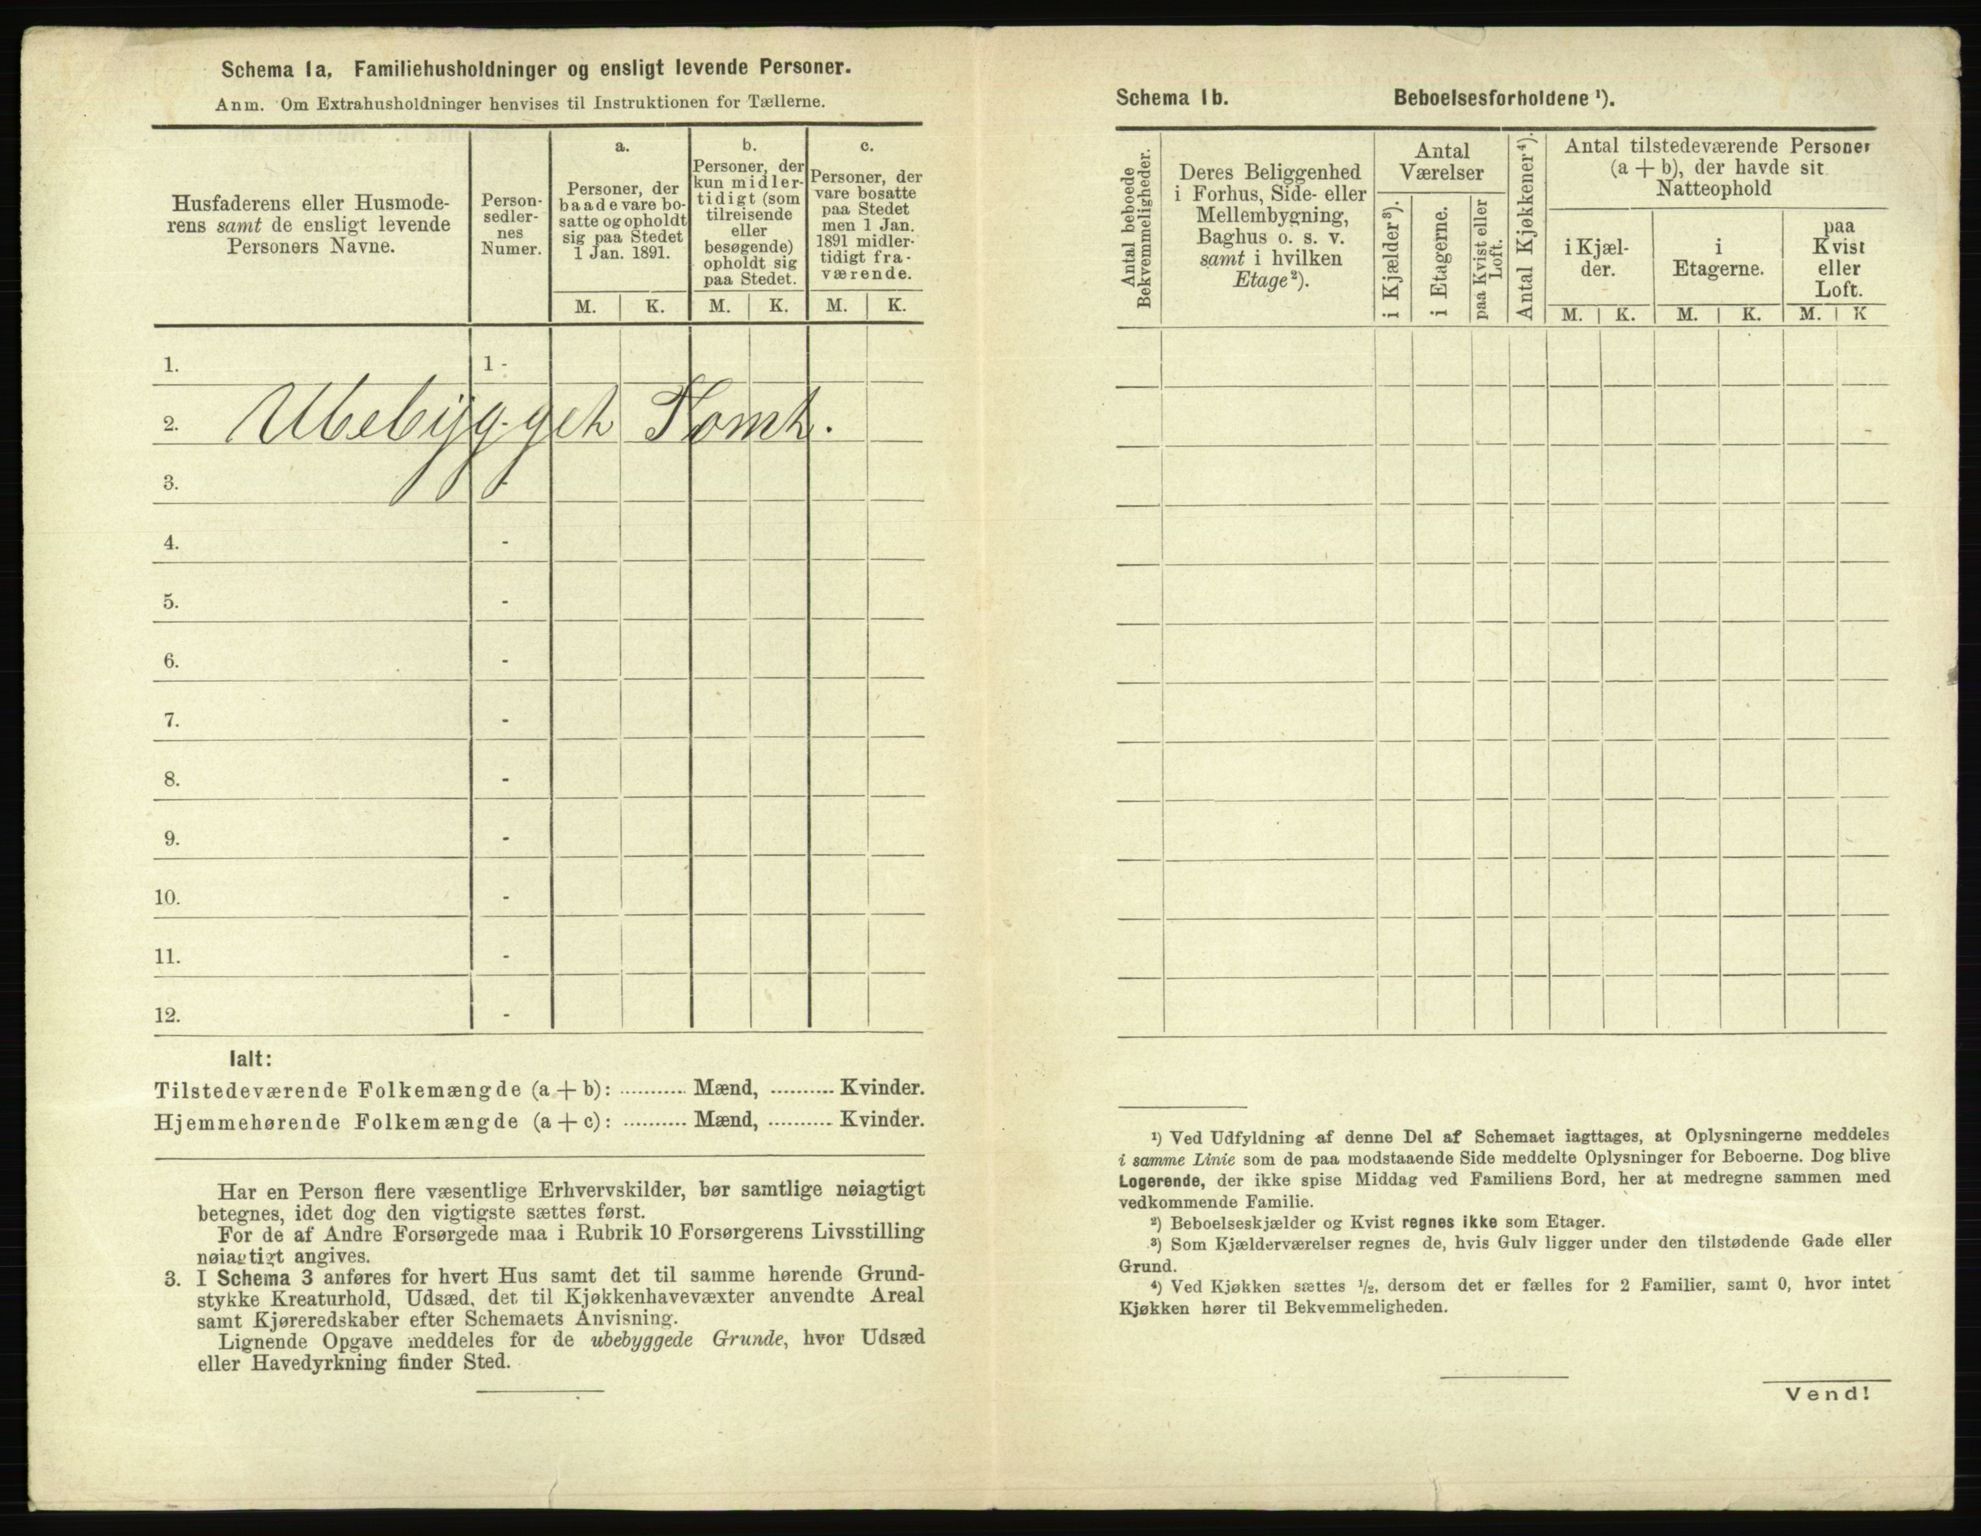 Schema 1a. Familiehusholdninger og ensligt levende Personer.
Anm. Om Extrahusholdninger henvises til Instruktionen for Tællerne.
Husfaderens eller Husmode-
rens samt de ensligt levende
Personers Navne.
Person-
sedler-
nes
Numer.
a.
Personer, der
baade vare bo-
satte og opholdt
sig paa Stedet
1 Jan. 1891.
b.
Personer, der
kun midler-
tidigt (som
tilreisende
eller
besøgende)
opholdt sig
paa Stedet.
c.
Personer, der
vare bosatte
paa Stedet
men 1 Jan.
1891 midler-
tidigt fra-
værende.
M. K. M. K. M. K.
1. 1 -
2. Ubebygget Tomt.
3.
4. -
5. -
6. -
7. -
8. -
9. -
10. -
11. -
12. -
Ialt:
Tilstedeværende Folkemængde (a + b): ........... Mænd, ........... Kvinder.
Hjemmehørende Folkemængde (a + c): ........... Mænd, ........... Kvinder.
Har en Person flere væsentlige Erhvervskilder, bør samtlige nøiagtigt
betegnes, idet dog den vigtigste sættes først.
For de af Andre Forsørgede maa i Rubrik 10 Forsørgerens Livsstilling
nøiagtigt angives.
3. I Schema 3 anføres for hvert Hus samt det til samme hørende Grund-
stykke Kreaturhold, Udsæd, det til Kjøkkenhavevæxter anvendte Areal
samt Kjøreredskaber efter Schemaets Anvisning.
Lignende Opgave meddeles for de ubebyggede Grunde, hvor Udsæd
eller Havedyrkning finder Sted.
Schema 1b. Beboelsesforholdene ¹).
Antal beboede
Bekvemmeligheder.
Deres Beliggenhed
i Forhus, Side- eller
Mellembygning,
Baghus o. s. v.
samt i hvilken
Etage²).
Antal
Værelser
i Kjælder³).
i Etagerne.
paa Kvist eller
Loft.
Antal Kjøkkener⁴).
Antal tilstedeværende Personer
(a + b), der havde sit
Natteophold
i Kjæl-
der.
i
Etagerne.
paa
Kvist
eller
Loft.
M. K. M. K. M. K
¹) Ved Udfyldning af denne Del af Schemaet iagttages, at Oplysningerne meddeles
i samme Linie som de paa modstaaende Side meddelte Oplysninger for Beboerne. Dog blive
Logerende, der ikke spise Middag ved Familiens Bord, her at medregne sammen med
vedkommende Familie.
²) Beboelseskjælder og Kvist regnes ikke som Etager.
³) Som Kjælderværelser regnes de, hvis Gulv ligger under den tilstødende Gade eller
Grund.
⁴) Ved Kjøkken sættes ½, dersom det er fælles for 2 Familier, samt 0, hvor intet
Kjøkken hører til Bekvemmeligheden.
Vend!